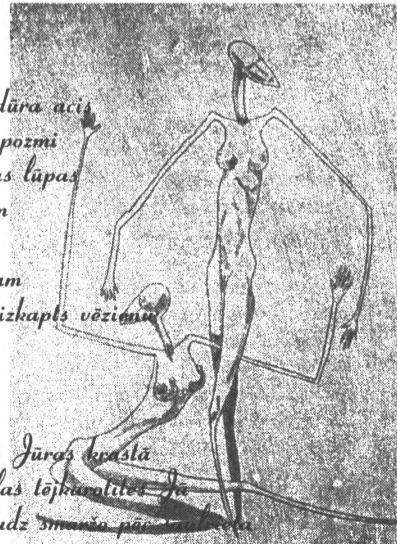 dūra acis
pozmi
as lūpas
m
am
izkapts vēzienu
Jūras krastā
las tējkarotītes Jā
udz smaržo pēc